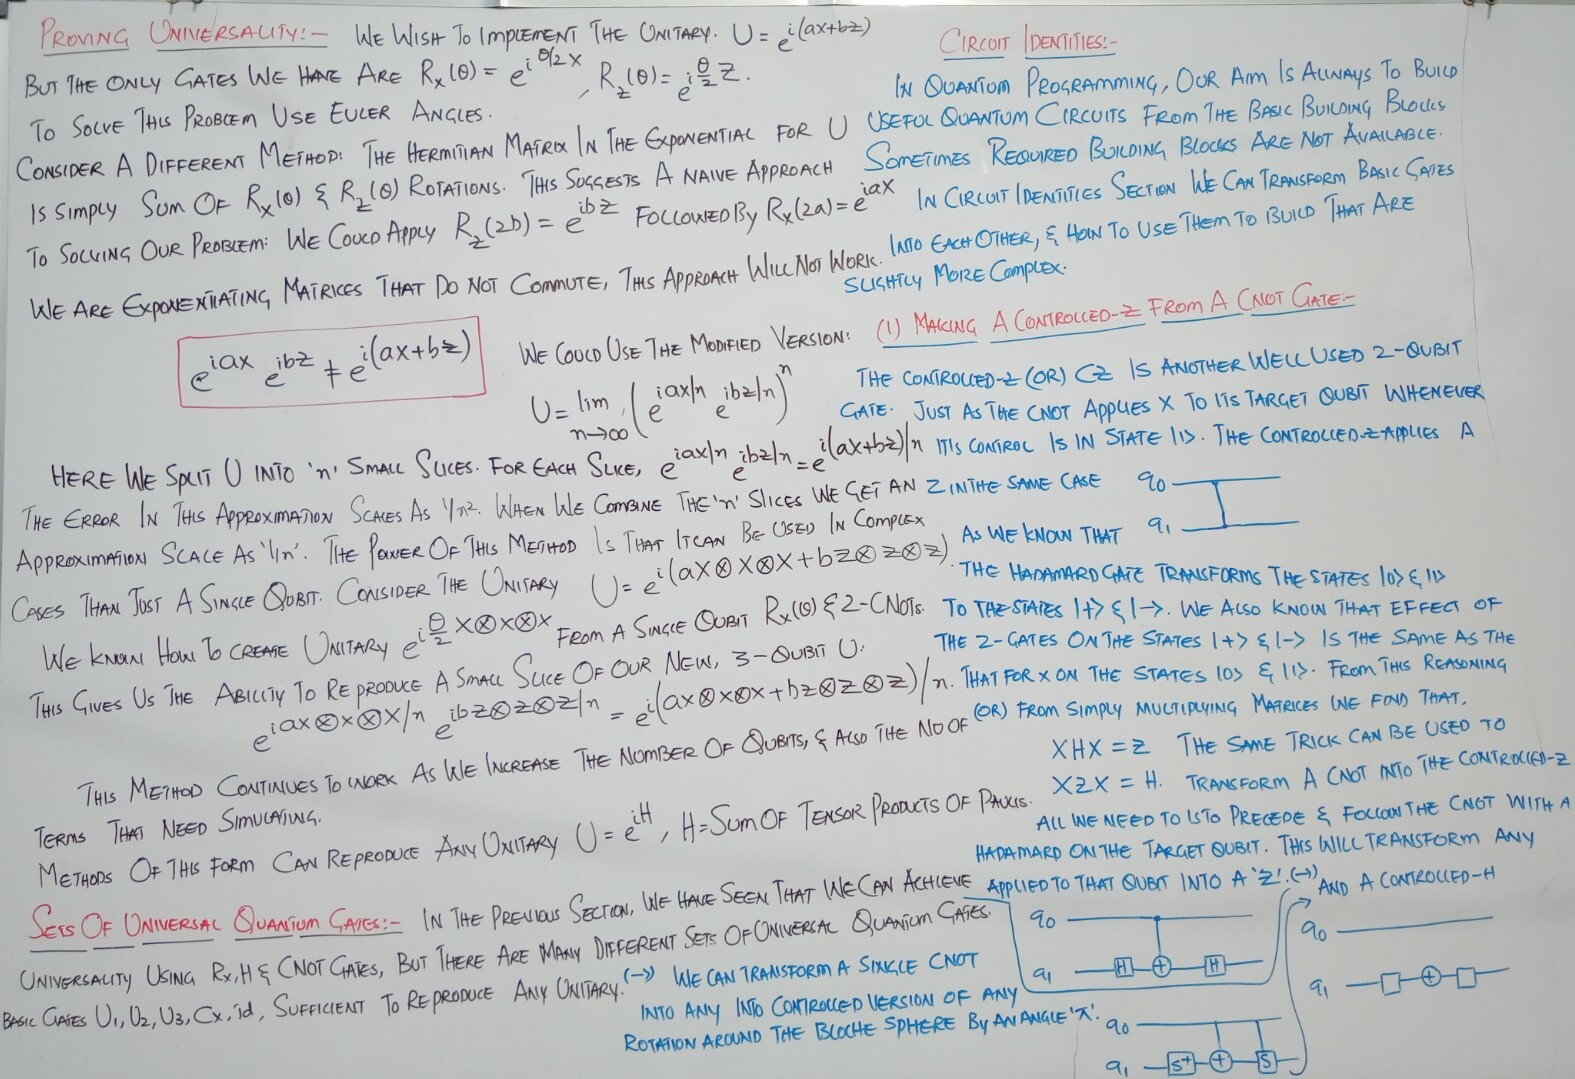 PROVING UNIVERSALITY:- WE WISH TO IMPLEMENT THE UNITARY. U = e^i(ax+bz)
BUT THE ONLY GATES WE HAVE ARE Rx(θ) = e^i θ/2 x, Rz(θ) = e^i θ/2 z.
TO SOLVE THIS PROBLEM USE EULER ANGLES.
CONSIDER A DIFFERENT METHOD: THE HERMITIAN MATRIX IN THE EXPONENTIAL FOR U
IS SIMPLY SUM OF Rx(θ) & Rz(θ) ROTATIONS. THIS SUGGESTS A NAIVE APPROACH
TO SOLVING OUR PROBLEM: WE COULD APPLY Rz(2b) = e^ibz FOLLOWED BY Rx(2a) = e^iax
WE ARE EXPONENTIATING MATRICES THAT DO NOT COMMUTE, THIS APPROACH WILL NOT WORK.
e^iax e^ibz ≠ e^i(ax+bz)
WE COULD USE THE MODIFIED VERSION:
U = lim n→∞ (e^iax/n e^ibz/n)^n
HERE WE SPLIT U INTO 'n' SMALL SLICES. FOR EACH SLICE, e^iax/n e^ibz/n = e^i(ax+bz)/n
THE ERROR IN THIS APPROXIMATION SCALES AS 1/n². WHEN WE COMBINE THE 'n' SLICES WE GET AN
APPROXIMATION SCALE AS '1/n'. THE POWER OF THIS METHOD IS THAT IT CAN BE USED IN COMPLEX
CASES THAN JUST A SINGLE QUBIT. CONSIDER THE UNITARY U = e^i(ax⊗x⊗x+bz⊗z⊗z).
WE KNOW HOW TO CREATE UNITARY e^i θ/2 x⊗x⊗x FROM A SINGLE QUBIT Rx(θ) & 2-CNOTS.
THIS GIVES US THE ABILITY TO REPRODUCE A SMALL SLICE OF OUR NEW, 3-QUBIT U.
e^iax⊗x⊗x/n e^ibz⊗z⊗z/n = e^i(ax⊗x⊗x+bz⊗z⊗z)/n.
THIS METHOD CONTINUES TO WORK AS WE INCREASE THE NUMBER OF QUBITS, & ALSO THE NO OF
TERMS THAT NEED SIMULATING.
METHODS OF THIS FORM CAN REPRODUCE ANY UNITARY U = e^iH, H = SUM OF TENSOR PRODUCTS OF PAULIS.
SETS OF UNIVERSAL QUANTUM GATES:- IN THE PREVIOUS SECTION, WE HAVE SEEN THAT WE CAN ACHIEVE
UNIVERSALITY USING Rx, H & CNOT GATES, BUT THERE ARE MANY DIFFERENT SETS OF UNIVERSAL QUANTUM GATES.
BASIC GATES U1, U2, U3, Cx, id, SUFFICIENT TO REPRODUCE ANY UNITARY.
CIRCUIT IDENTITIES:-
IN QUANTUM PROGRAMMING, OUR AIM IS ALWAYS TO BUILD
USEFUL QUANTUM CIRCUITS FROM THE BASIC BUILDING BLOCKS
SOMETIMES REQUIRED BUILDING BLOCKS ARE NOT AVAILABLE.
IN CIRCUIT IDENTITIES SECTION WE CAN TRANSFORM BASIC GATES
INTO EACH OTHER, & HOW TO USE THEM TO BUILD THAT ARE
SLIGHTLY MORE COMPLEX.
(1) MAKING A CONTROLLED-Z FROM A CNOT GATE:-
THE CONTROLLED-Z (OR) CZ IS ANOTHER WELL USED 2-QUBIT
GATE. JUST AS THE CNOT APPLIES X TO ITS TARGET QUBIT WHENEVER
ITS CONTROL IS IN STATE |1>. THE CONTROLLED-Z APPLIES A
Z IN THE SAME CASE
q0
q1
AS WE KNOW THAT
THE HADAMARD GATE TRANSFORMS THE STATES |0> & |1>
TO THE STATES |+> & |->. WE ALSO KNOW THAT EFFECT OF
THE Z-GATES ON THE STATES |+> & |-> IS THE SAME AS THE
THAT FOR X ON THE STATES |0> & |1>. FROM THIS REASONING
(OR) FROM SIMPLY MULTIPLYING MATRICES WE FIND THAT.
XHX = Z THE SAME TRICK CAN BE USED TO
XZX = H. TRANSFORM A CNOT INTO THE CONTROLLED-Z
ALL WE NEED TO IS TO PRECEDE & FOLLOW THE CNOT WITH A
HADAMARD ON THE TARGET QUBIT. THIS WILL TRANSFORM ANY
APPLIED TO THAT QUBIT INTO A 'Z'. (→) AND A CONTROLLED-H
q0
q1 H + H
q0
q1 +
(→) WE CAN TRANSFORM A SINGLE CNOT
INTO ANY INTO CONTROLLED VERSION OF ANY
ROTATION AROUND THE BLOCHE SPHERE BY AN ANGLE 'π'.
q0
q1 S+ + S